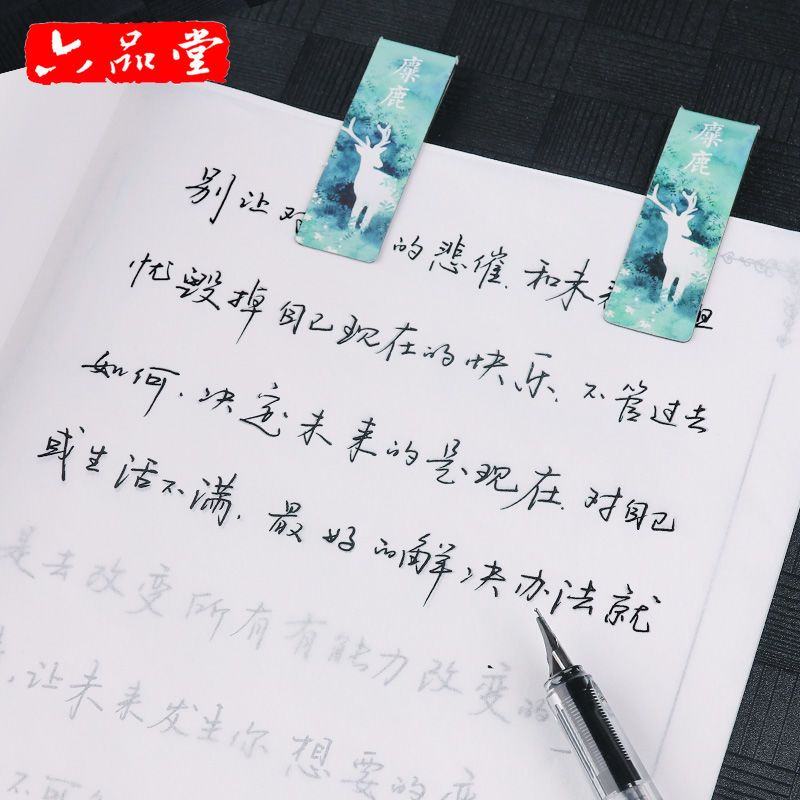 六品堂
麋鹿
麋鹿
别让对的悲催、和未来担
忧毁掉自己现在的快乐、不管过去
如何、决定未来的是现在、对自己
或生活不满、最好的解决办法就
是去改变所有有能力改变的一
,让未来发生你想要的变
不可